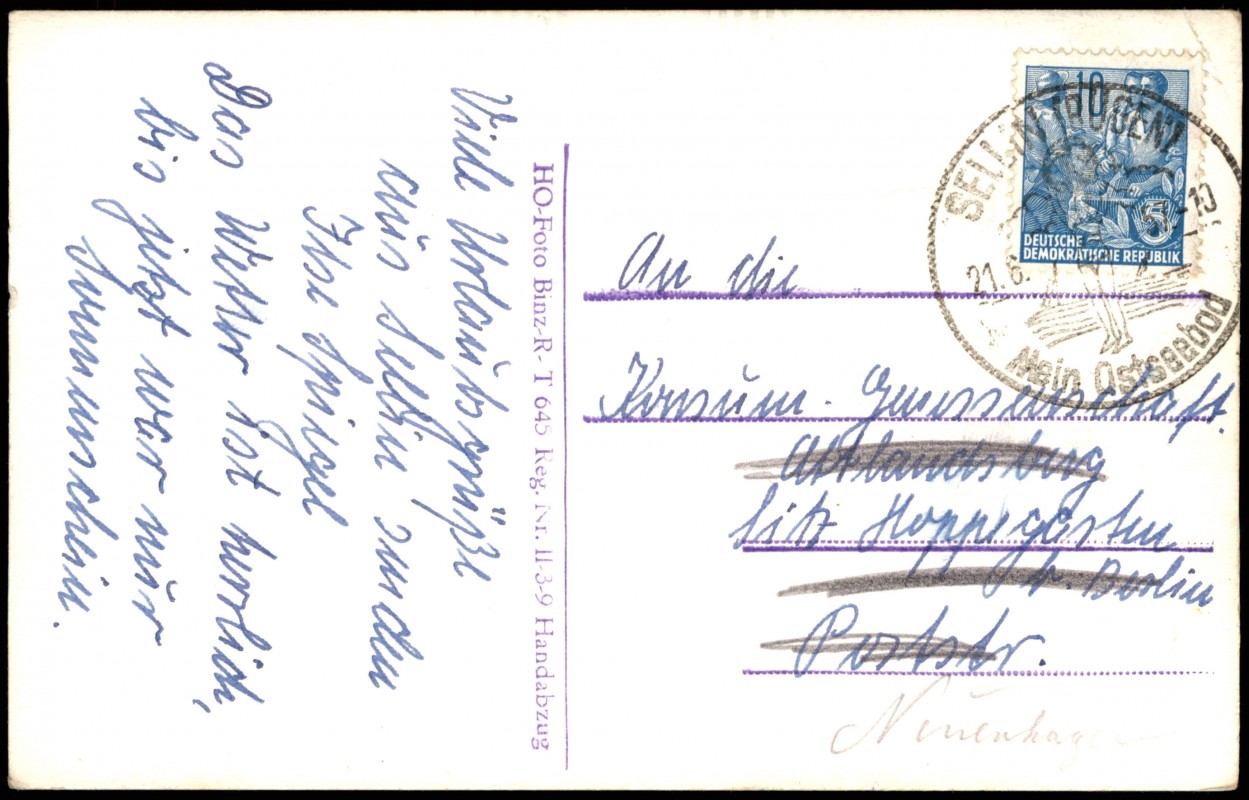 Viele Urlaubsgrüße
aus Sellin senden
Ilse Spiegel
Das Wetter ist herrlich,
bis jetzt war nur
Sonnenschein.
HO-Foto Binz-R - T 645 Reg. Nr. II-3-9 Handabzug
10
5
DEUTSCHE
DEMOKRATISCHE REPUBLIK
SELLIN (RÜGEN)
21.6.57-10
Mein Ostseebad
An die
Konsum-Genossenschaft.
Altlandsberg
Sitz Hoppegarten
b. Berlin
Poststr.
Neuenhagen